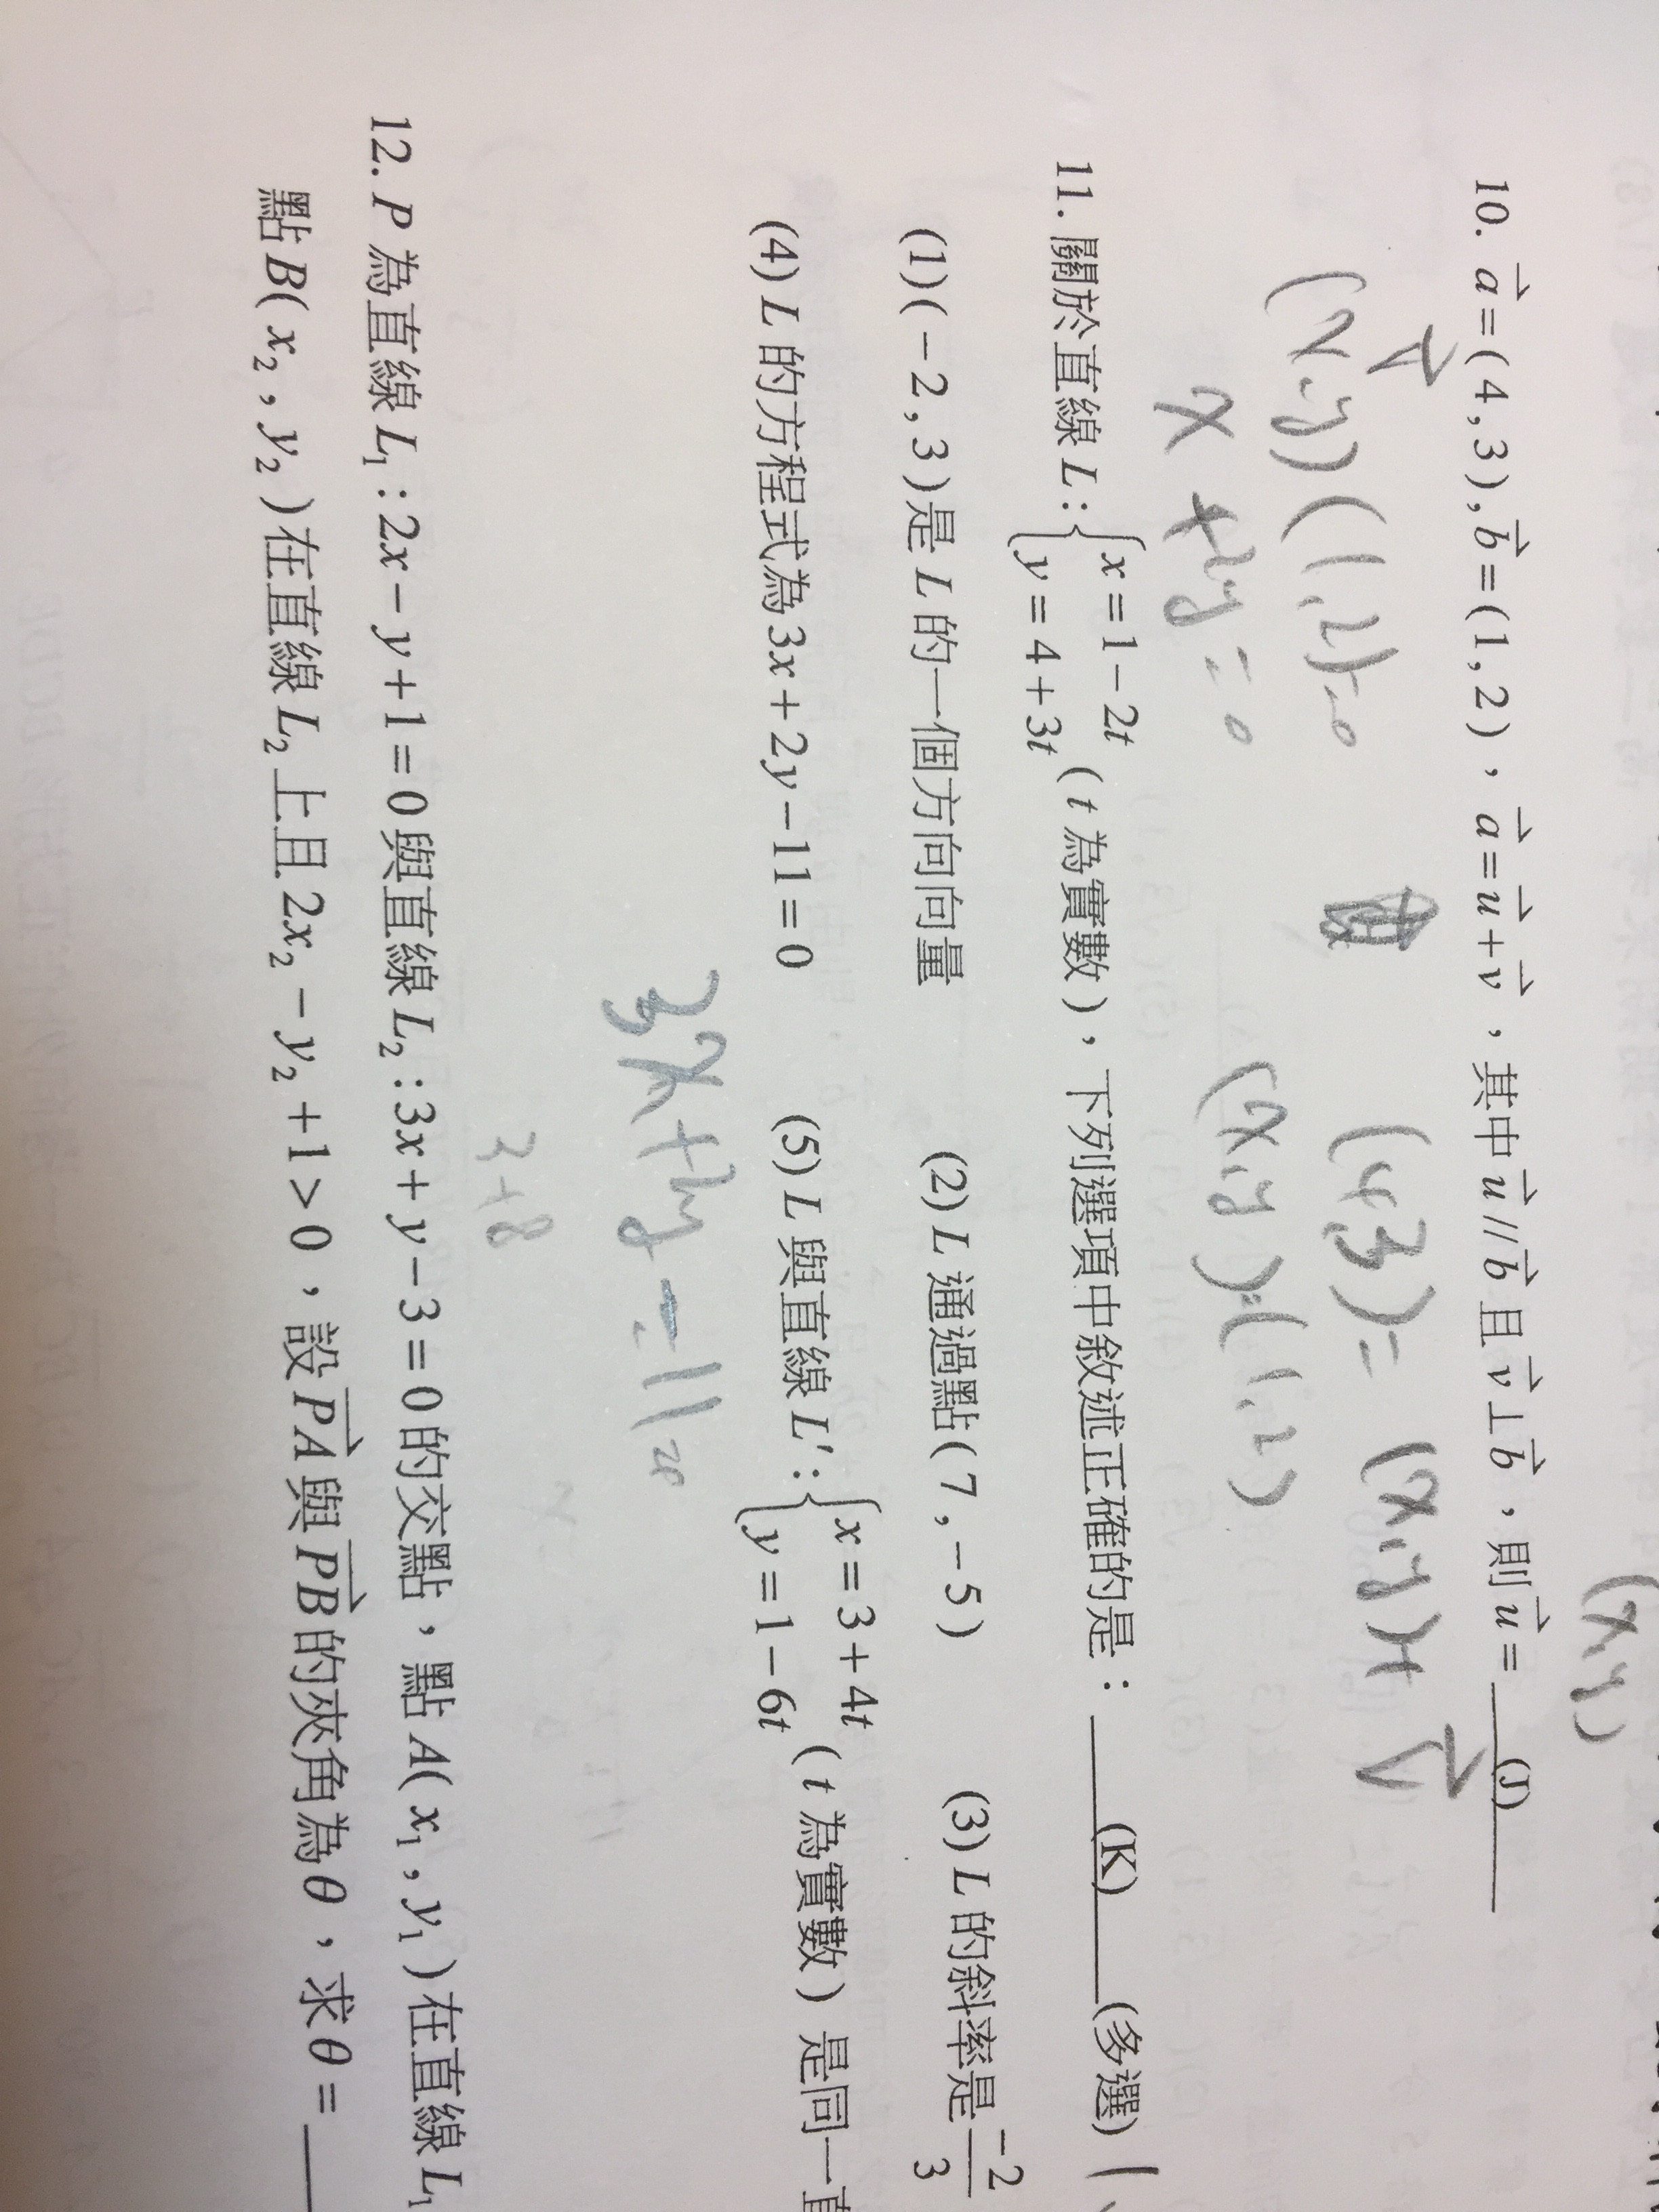 (x,y)
10. a⃗=(4,3), b⃗=(1,2),a⃗=u⃗+v⃗,其中u⃗//b⃗且v⃗⊥b⃗,則u⃗= (J)
v⃗ (4,3)= (x,y)+ v⃗
(x,y)(1,2)=0 (x,y)=(1,2)
x+2y=0
11. 關於直線L:{x=1-2t y=4+3t (t為實數),下列選項中敘述正確的是: (K) (多選)
(1)(-2,3)是L的一個方向向量 (2)L通過點(7,-5) (3)L的斜率是-2/3
(4)L的方程式為3x+2y-11=0 (5)L與直線L':{x=3+4t y=1-6t (t為實數)是同一
3x+2y-11=0
3+8
12. P為直線L₁:2x-y+1=0與直線L₂:3x+y-3=0的交點,點A(x₁,y₁)在直線L₁
點B(x₂,y₂)在直線L₂上且2x₂-y₂+1>0,設PA⃗與PB⃗的夾角為θ,求θ=